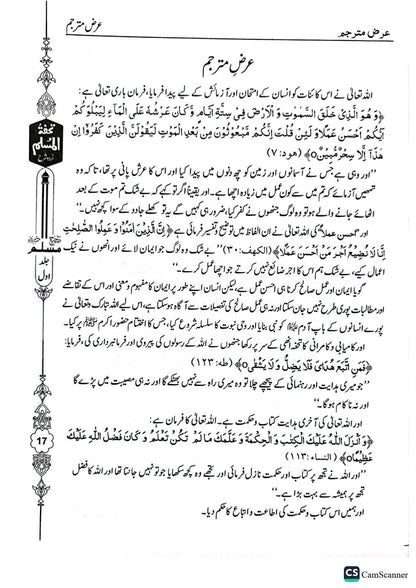 عرض مترجم
عرض مترجم
عرضِ مترجم
اللہ تعالیٰ نے اس کائنات کو انسان کے امتحان اور آزمائش کے لیے پیدا فرمایا، فرمان باری تعالیٰ ہے:
﴿وَهُوَ الَّذِیْ خَلَقَ السَّمٰوٰتِ وَالْاَرْضَ فِیْ سِتَّةِ اَیَّامٍ وَّكَانَ عَرْشُهٗ عَلَی الْمَآءِ لِیَبْلُوَكُمْ
اَیُّكُمْ اَحْسَنُ عَمَلًا وَلَئِنْ قُلْتَ اِنَّكُمْ مَّبْعُوْثُوْنَ مِنْ بَعْدِ الْمَوْتِ لَیَقُوْلَنَّ الَّذِیْنَ كَفَرُوْٓا اِنْ
هٰذَآ اِلَّا سِحْرٌ مُّبِیْنٌ﴾ (هود: ٧)
”اور وہی ہے جس نے آسمانوں اور زمین کو چھ دنوں میں پیدا کیا اور اس کا عرش پانی پر تھا، تاکہ وہ
تمھیں آزمائے کہ تم میں سے کون عمل میں زیادہ اچھا ہے۔ اور یقیناً اگر تو کہے کہ بے شک تم موت کے بعد
اٹھائے جانے والے ہو تو وہ لوگ جنھوں نے کفر کیا، ضرور ہی کہیں گے یہ تو کھلے جادو کے سوا کچھ نہیں۔“
اور ”احسن عملا“ کی اللہ تعالیٰ نے ان الفاظ میں توضیح و تفسیر فرمائی ہے: ﴿اِنَّ الَّذِیْنَ اٰمَنُوْا وَعَمِلُوا الصّٰلِحٰتِ
اِنَّا لَا نُضِیْعُ اَجْرَ مَنْ اَحْسَنَ عَمَلًا﴾ (الكهف: ٣٠) ”بے شک وہ لوگ جو ایمان لائے اور انھوں نے نیک
اعمال کیے، بے شک ہم اس کا اجر ضائع نہیں کرتے جو اچھا عمل کرے۔“
گویا ایمان اور عمل صالح کرنا ہی احسن عمل ہے، لیکن انسان اپنے طور پر ایمان کا مفہوم و معنی اور اس کے تقاضے
اور مطالبات پوری طرح نہیں جان سکتا اور نہ ہی عمل صالح کی تفصیلات سے آگاہ ہو سکتا ہے، اس لیے اللہ تبارک وتعالیٰ نے
پورے انسانوں کے باپ آدم کو نبی بنایا اور وحی نبوت کا سلسلہ شروع کیا، جس کا اختتام حضور اکرم ﷺ پر کیا،
اور کامیابی و کامرانی کا تحفہ انھی کے سر پر رکھا جنھوں نے اللہ کے رسولوں کی پیروی اور فرمانبرداری کی، فرمایا:
﴿فَمَنِ اتَّبَعَ هُدَایَ فَلَا یَضِلُّ وَلَا یَشْقٰی﴾ (طه: ١٢٣)
”جو میری ہدایت اور رہنمائی کے پیچھے چلا تو وہ میری راہ سے نہیں بھٹکے گا اور نہ ہی مصیبت میں پڑے گا
اور نہ ناکام ہو گا۔“
اور اللہ تعالیٰ کی آخری ہدایت کتاب و حکمت ہے۔ اللہ تعالیٰ کا فرمان ہے:
﴿وَاَنْزَلَ اللّٰهُ عَلَیْكَ الْكِتٰبَ وَالْحِكْمَةَ وَعَلَّمَكَ مَا لَمْ تَكُنْ تَعْلَمُ وَكَانَ فَضْلُ اللّٰهِ عَلَیْكَ
عَظِیْمًا﴾ (النساء: ١١٣)
”اور اللہ نے تجھ پر کتاب اور حکمت نازل فرمائی اور تجھے وہ کچھ سکھایا جو تو نہیں جانتا تھا اور اللہ کا فضل
تجھ پر ہمیشہ سے بہت بڑا ہے۔“
اور ہمیں اس کتاب و حکمت کی اطاعت و اتباع کا حکم دیا۔
تحفۃ
المسلم
مسلم
جلد
اول
17
CS CamScanner